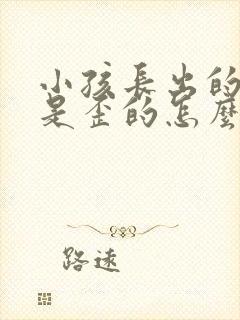 小孩長出的
是歪的怎麼
路遠